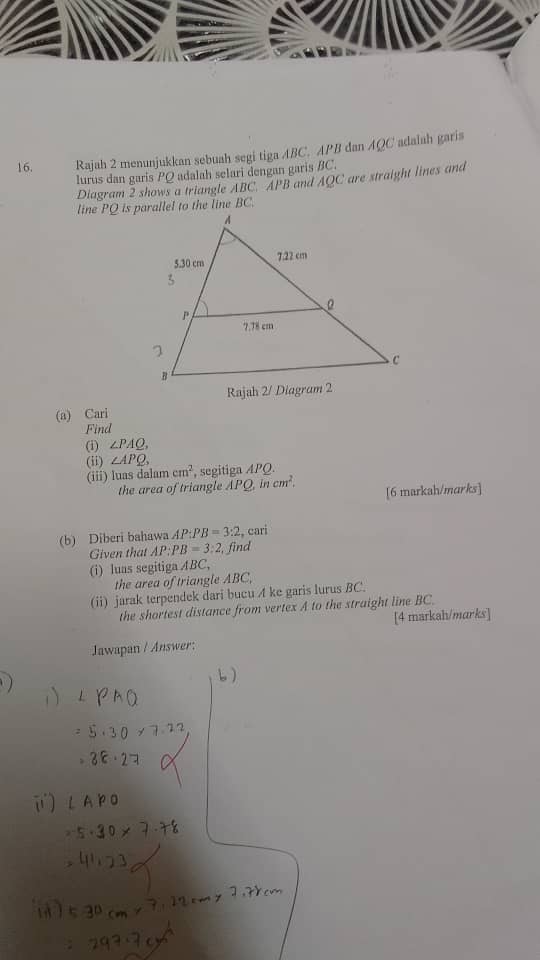 16.
Rajah 2 menunjukkan sebuah segi tiga ABC. APB dan AQC adalah garis
lurus dan garis PQ adalah selari dengan garis BC.
Diagram 2 shows a triangle ABC. APB and AQC are straight lines and
line PQ is parallel to the line BC.
A
5.30 cm
7.22 cm
3
P
Q
7.78 cm
2
B
C
Rajah 2/ Diagram 2
(a) Cari
Find
(i) ∠PAQ,
(ii) ∠APQ,
(iii) luas dalam cm², segitiga APQ.
the area of triangle APQ, in cm².
[6 markah/marks]
(b) Diberi bahawa AP:PB = 3:2, cari
Given that AP:PB = 3:2, find
(i) luas segitiga ABC,
the area of triangle ABC,
(ii) jarak terpendek dari bucu A ke garis lurus BC.
the shortest distance from vertex A to the straight line BC.
[4 markah/marks]
Jawapan / Answer:
i) ∠ PAQ
= 5.30 × 7.22
= 38.27
ii) ∠ APQ
= 5.30 × 7.78
= 41.23
iii) 5.30 cm × 7.22 cm × 7.78 cm
= 297.7 cm
b)